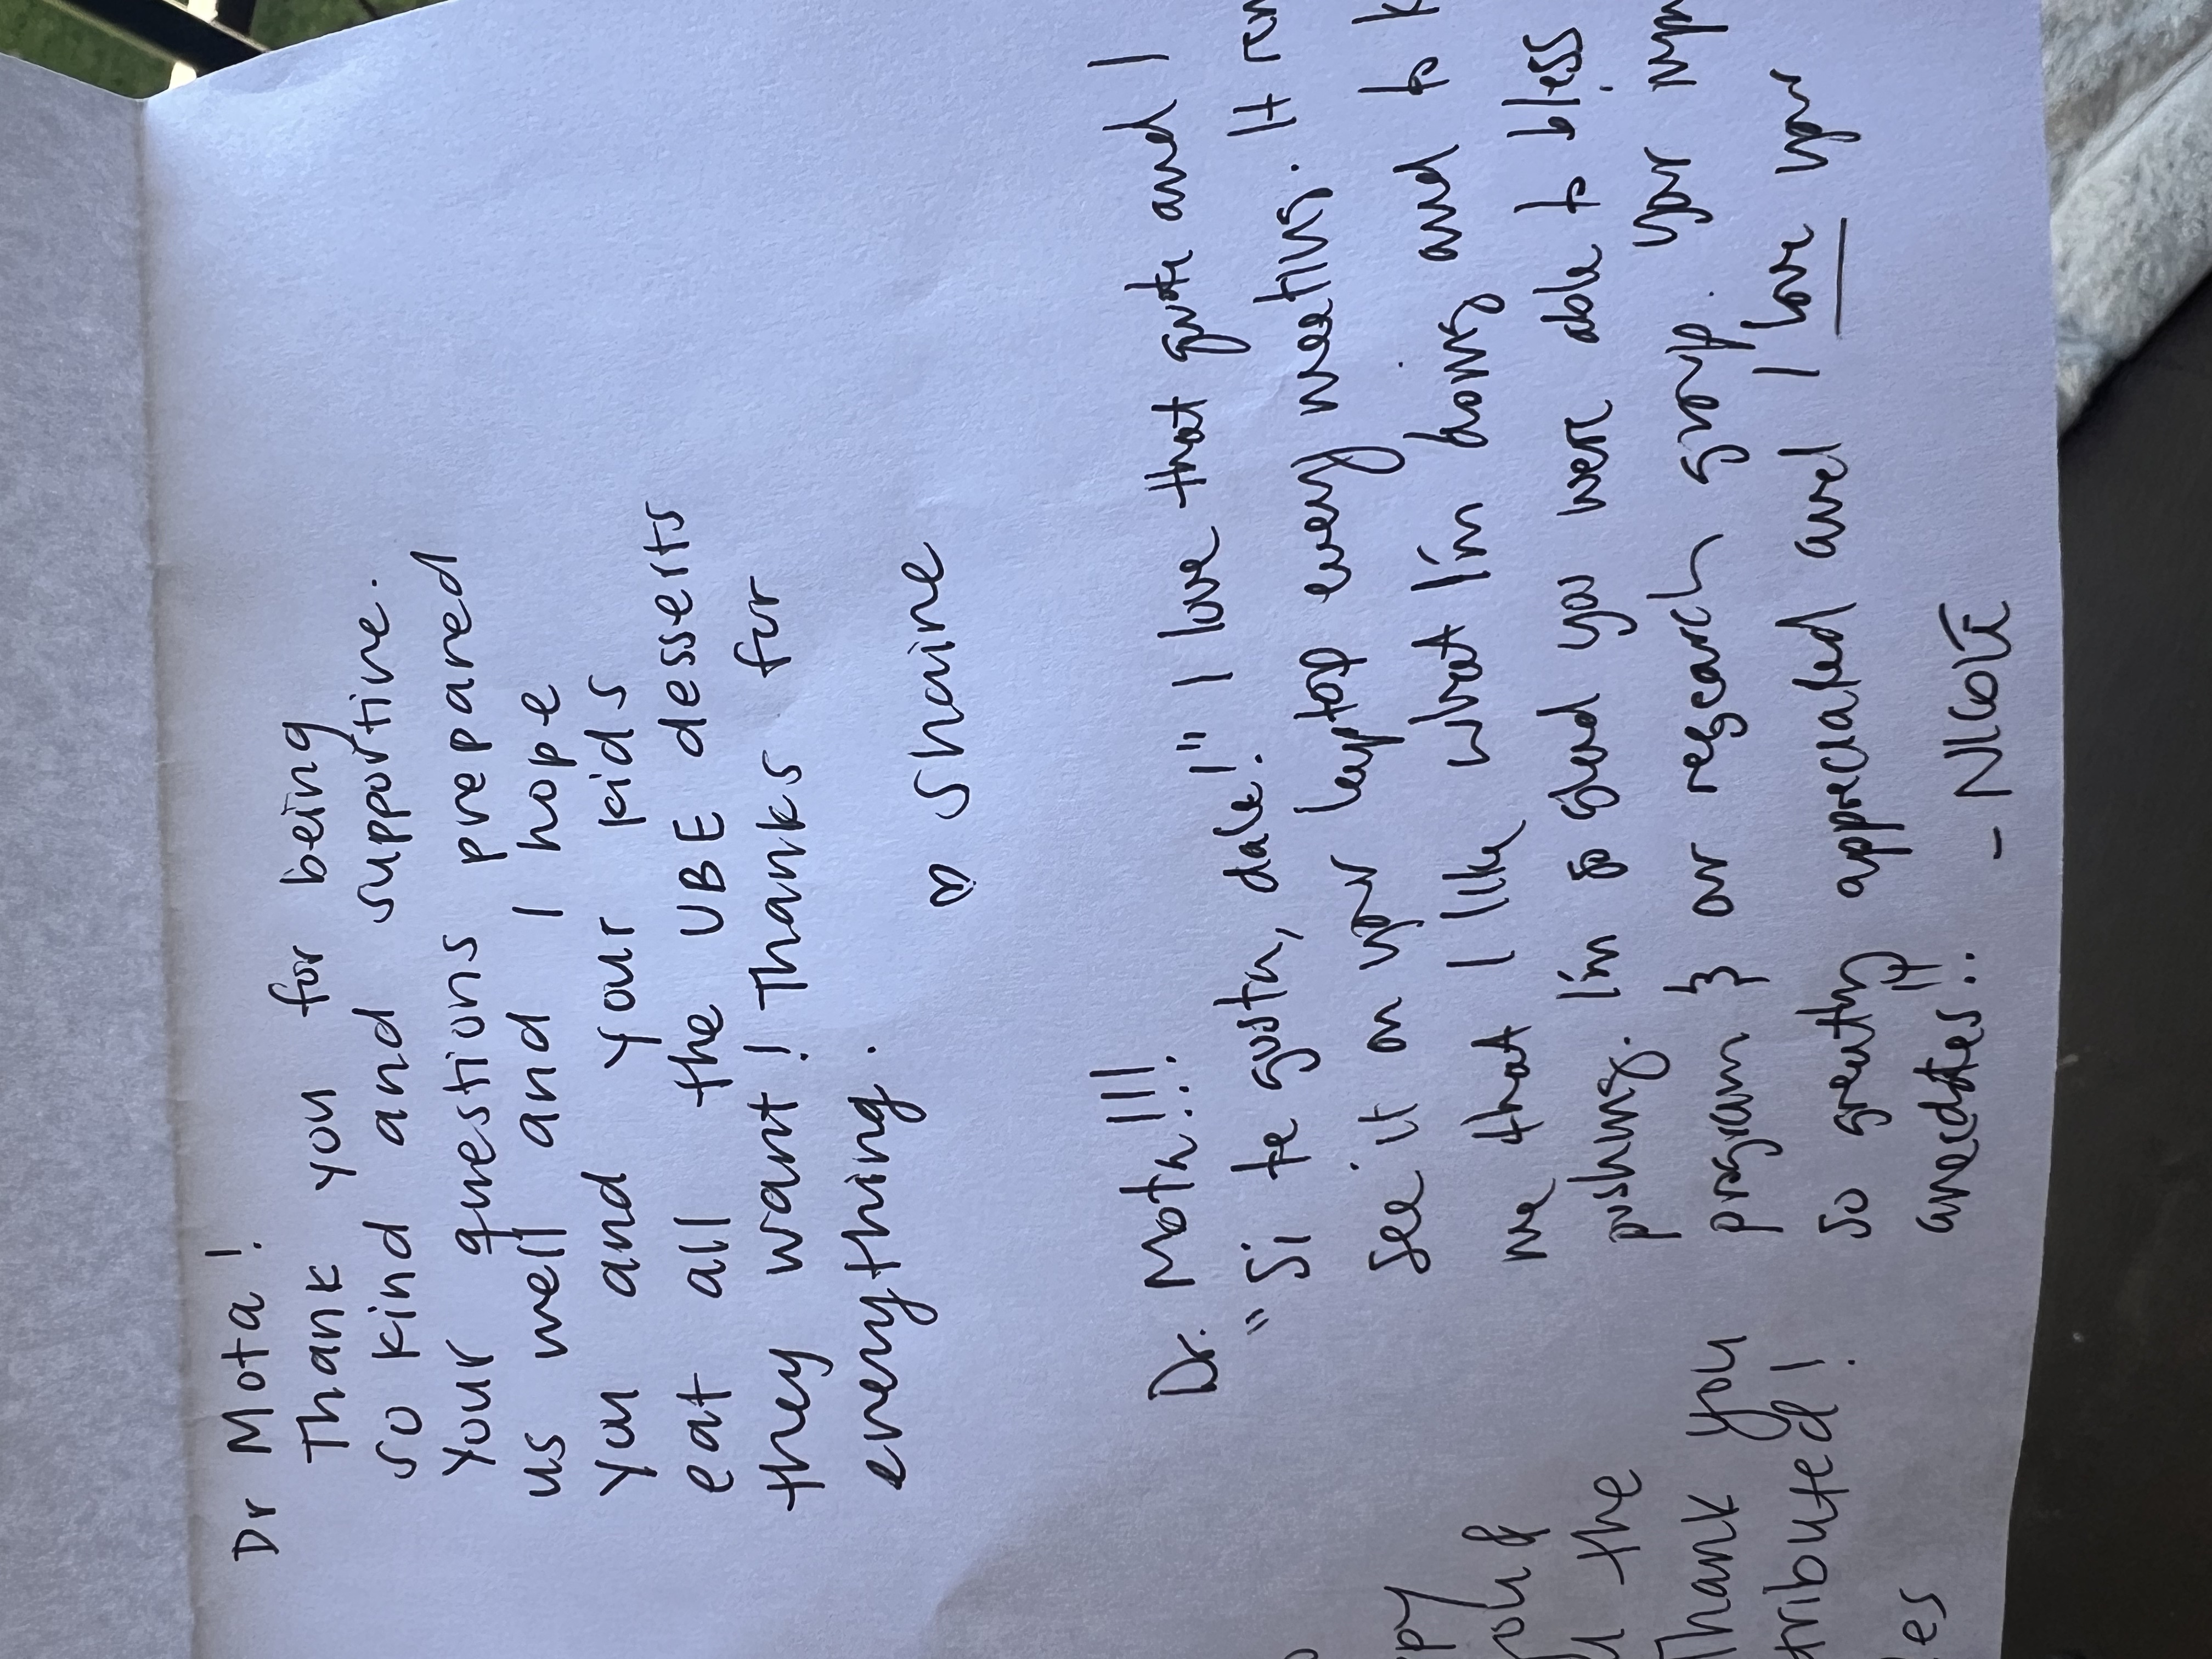 Dr Mota!
Thank you for being
so kind and supportive.
Your questions prepared
us well and I hope
you and your kids
eat all the UBE desserts
they want! Thanks for
everything.
♡ Shaine
Dr. Mota!!!
"Si te gusta, dale!" I love that quote and I
see it on your laptop every meeting. It
me that I like what I'm doing and to
pushing. I'm so glad you were able to bless
program & our research group. Your
so greatly appreciated and I love your
anecdotes!!
- NICOLE
the
Thank you